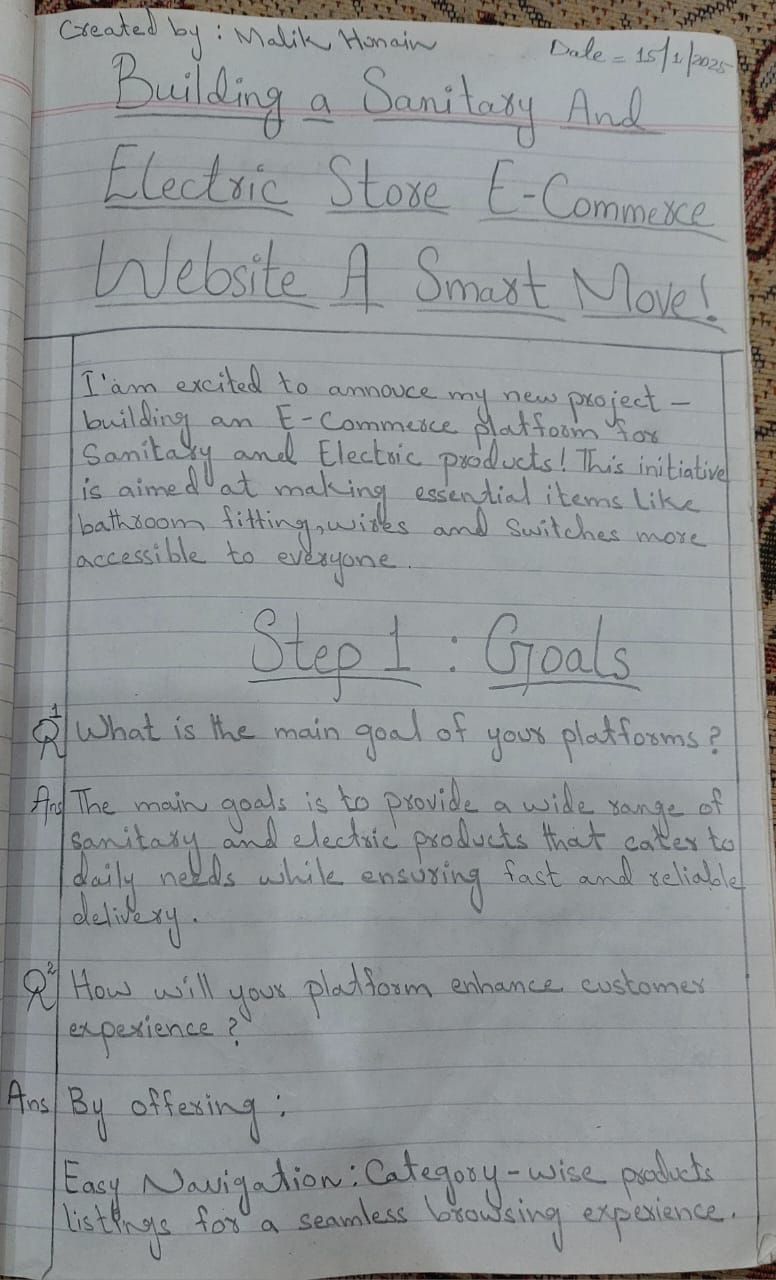 Created by : Malik Honain
Date = 15/1/2025
Building a Sanitary And
Electric Store E-Commerce
Website A Smart Move!
I'am excited to annouce my new project –
building an E-Commerce platform for
Sanitary and Electric products! This initiative
is aimed at making essential items like
bathroom fitting, wires and Switches more
accessible to everyone.
Step 1 : Goals
Q1 What is the main goal of your platforms?
Ans The main goals is to provide a wide range of
sanitary and electric products that cater to
daily needs while ensuring fast and reliable
delivery.
Q2 How will your platform enhance customer
experience?
Ans By offering :
Easy Navigation : Category-wise products
listings for a seamless browsing experience.